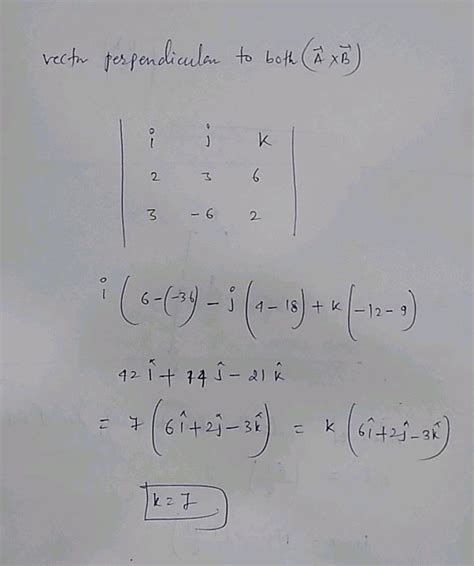 vector perpendicular to both (A⃗ × B⃗)
i j k
2 3 6
3 -6 2
i (6-(-36) - j (4-18) + k (-12-9)
42 î + 14 ĵ - 21 k̂
= 7 (6î+2ĵ-3k̂) = k (6î+2ĵ-3k̂)
k=7